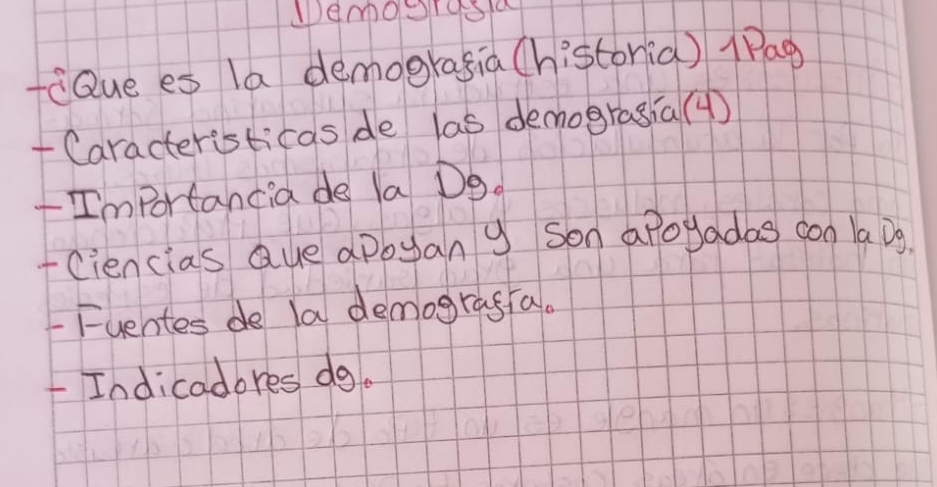 Demografía
-¿Que es la demografía (historia) 1Pag
- Caracteristicas de las demografía (4)
- Importancia de la Dg.
- Ciencias que apoyan y son apoyadas con la Dg.
- Fuentes de la demografía.
- Indicadores dg.